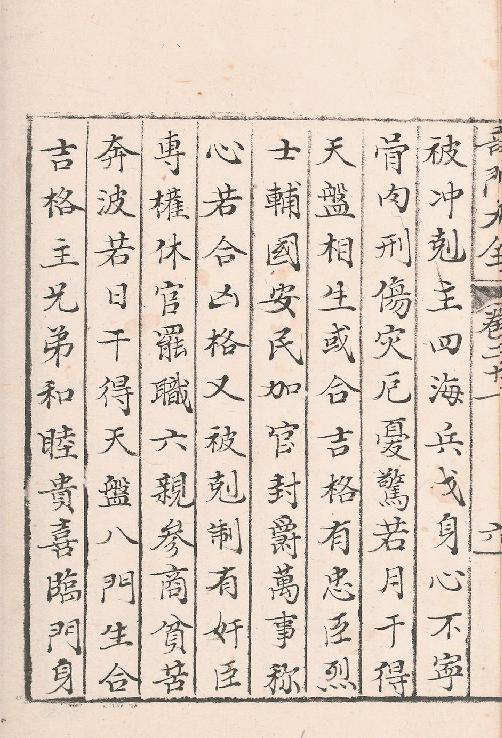 奇門大全 卷二十一 六
被冲剋主四海兵戈身心不寧
骨肉刑傷灾厄憂驚若月干得
天盤相生或合吉格有忠臣烈
士輔國安民加官封爵萬事称
心若合凶格又被剋制有奸臣
專權休官罷職六親參商貧苦
奔波若日干得天盤八門生合
吉格主兄弟和睦貴喜臨門身